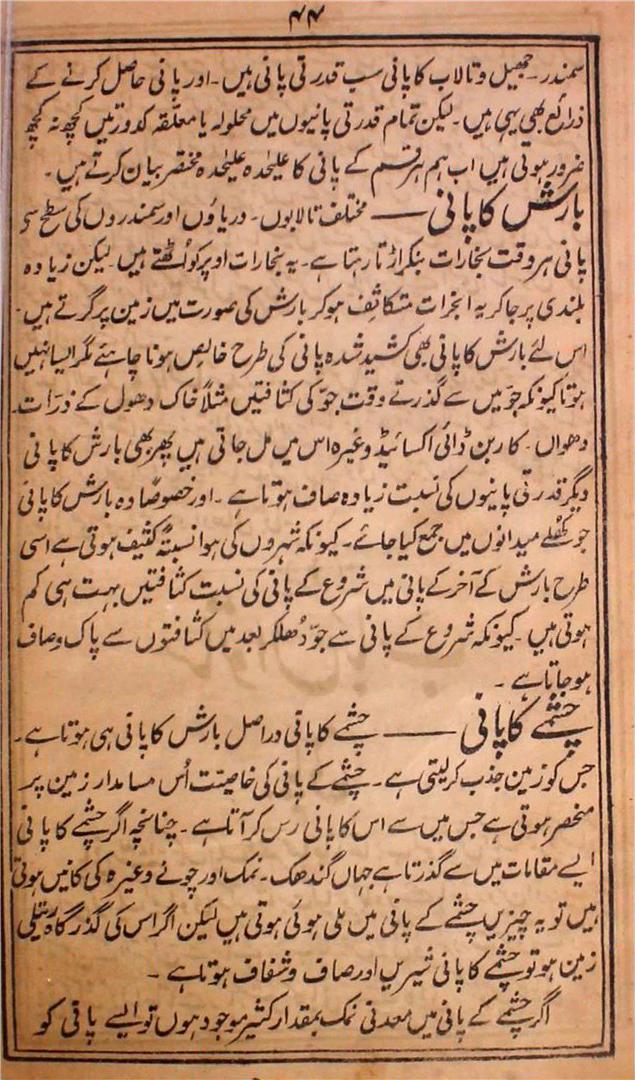 ۴۴
سمندر۔ جھیل و تالاب کا پانی سب قدرتی پانی ہیں۔ اور پانی حاصل کرنے کے
ذرائع بھی یہی ہیں۔ لیکن تمام قدرتی پانیوں میں محلولہ یا معلّقہ کدورتیں کچھ نہ کچھ
ضرور ہوتی ہیں اب ہم ہر قسم کے پانی کا علیٰحدہ علیٰحدہ مختصر بیان کرتے ہیں۔
بارش کا پانی —— مختلف تالابوں۔ دریاؤں اور سمندروں کی سطح سے
پانی ہر وقت بخارات بنکر اڑتا رہتا ہے۔ یہ بخارات اوپر کو اُٹھتے ہیں۔ لیکن زیادہ
بلندی پر جا کر یہ ابخرات متکاثف ہو کر بارش کی صورت میں زمین پر گرتے ہیں۔
اس لئے بارش کا پانی بھی کشید شدہ پانی کی طرح خالص ہونا چاہئے مگر ایسا نہیں
ہوتا کیونکہ جوّ میں سے گذرتے وقت جوّ کی کثافتیں مثلاً خاک دھول کے ذرّات۔
دھواں۔ کاربن ڈائی اکسائیڈ وغیرہ اس میں مل جاتی ہیں پھر بھی بارش کا پانی
دیگر قدرتی پانیوں کی نسبت زیادہ صاف ہوتا ہے۔ اور خصوصًا وہ بارش کا پانی
جو کھلے میدانوں میں جمع کیا جائے۔ کیونکہ شہروں کی ہوا نسبتہً کثیف ہوتی ہے اسی
طرح بارش کے آخر کے پانی میں شروع کے پانی کی نسبت کثافتیں بہت ہی کم
ہوتی ہیں۔ کیونکہ شروع کے پانی سے جوّ دُھلکر بعد میں کثافتوں سے پاک و صاف
ہو جاتا ہے۔
چشمے کا پانی —— چشمے کا پانی دراصل بارش کا پانی ہی ہوتا ہے۔
جس کو زمین جذب کر لیتی ہے۔ چشمے کے پانی کی خاصیت اُس مسامدار زمین پر
منحصر ہوتی ہے جس میں سے اس کا پانی رس کر آتا ہے۔ چنانچہ اگر چشمے کا پانی
ایسے مقامات میں سے گذرتا ہے جہاں گندھک۔ نمک اور چونے وغیرہ کی کانیں ہوتی
ہیں تو یہ چیزیں چشمے کے پانی میں ملی ہوئی ہوتی ہیں لیکن اگر اس کی گذرگاہ ریتلی
زمین ہو تو چشمے کا پانی شیریں اور صاف و شفاف ہوتا ہے۔
اگر چشمے کے پانی میں معدنی نمک بمقدار کثیر موجود ہوں تو ایسے پانی کو